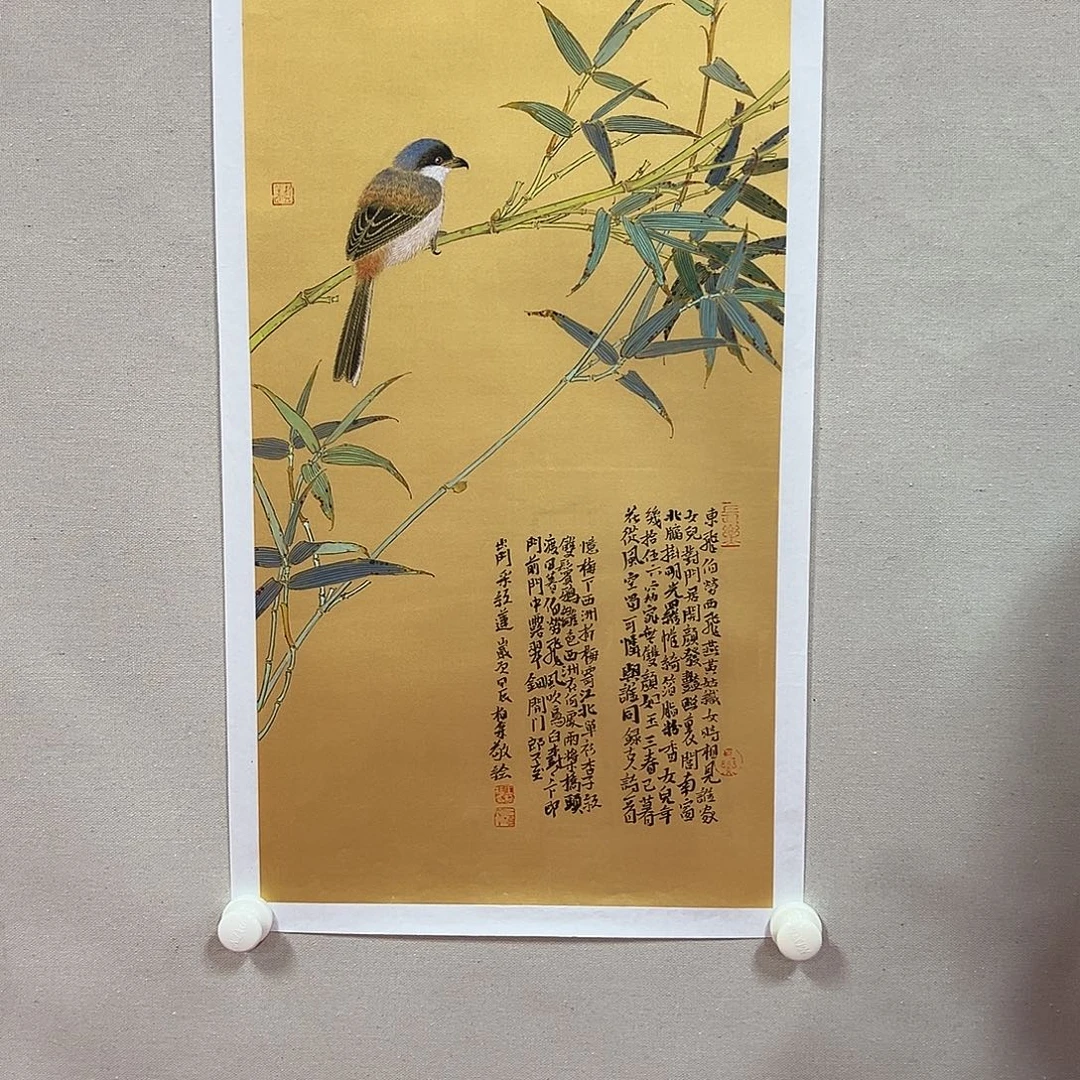 東飛伯勞西飛燕黃姑織女時相見誰家
女兒對門居開顏發艷照裏閭南窗
北牖掛明光羅帷綺箔脂粉香女兒年
幾拾伍六窈窕無雙顏如玉三春已暮
花從風空留可憐與誰同錄古詩一首
憶梅下西洲折梅寄江北單衫杏子紅
雙鬢鴉雛色西洲在何處兩槳橋頭
渡日暮伯勞飛風吹烏臼樹樹下即
門前門中露翠鈿開門郎不至
出門采紅蓮歲次甲辰敬繪